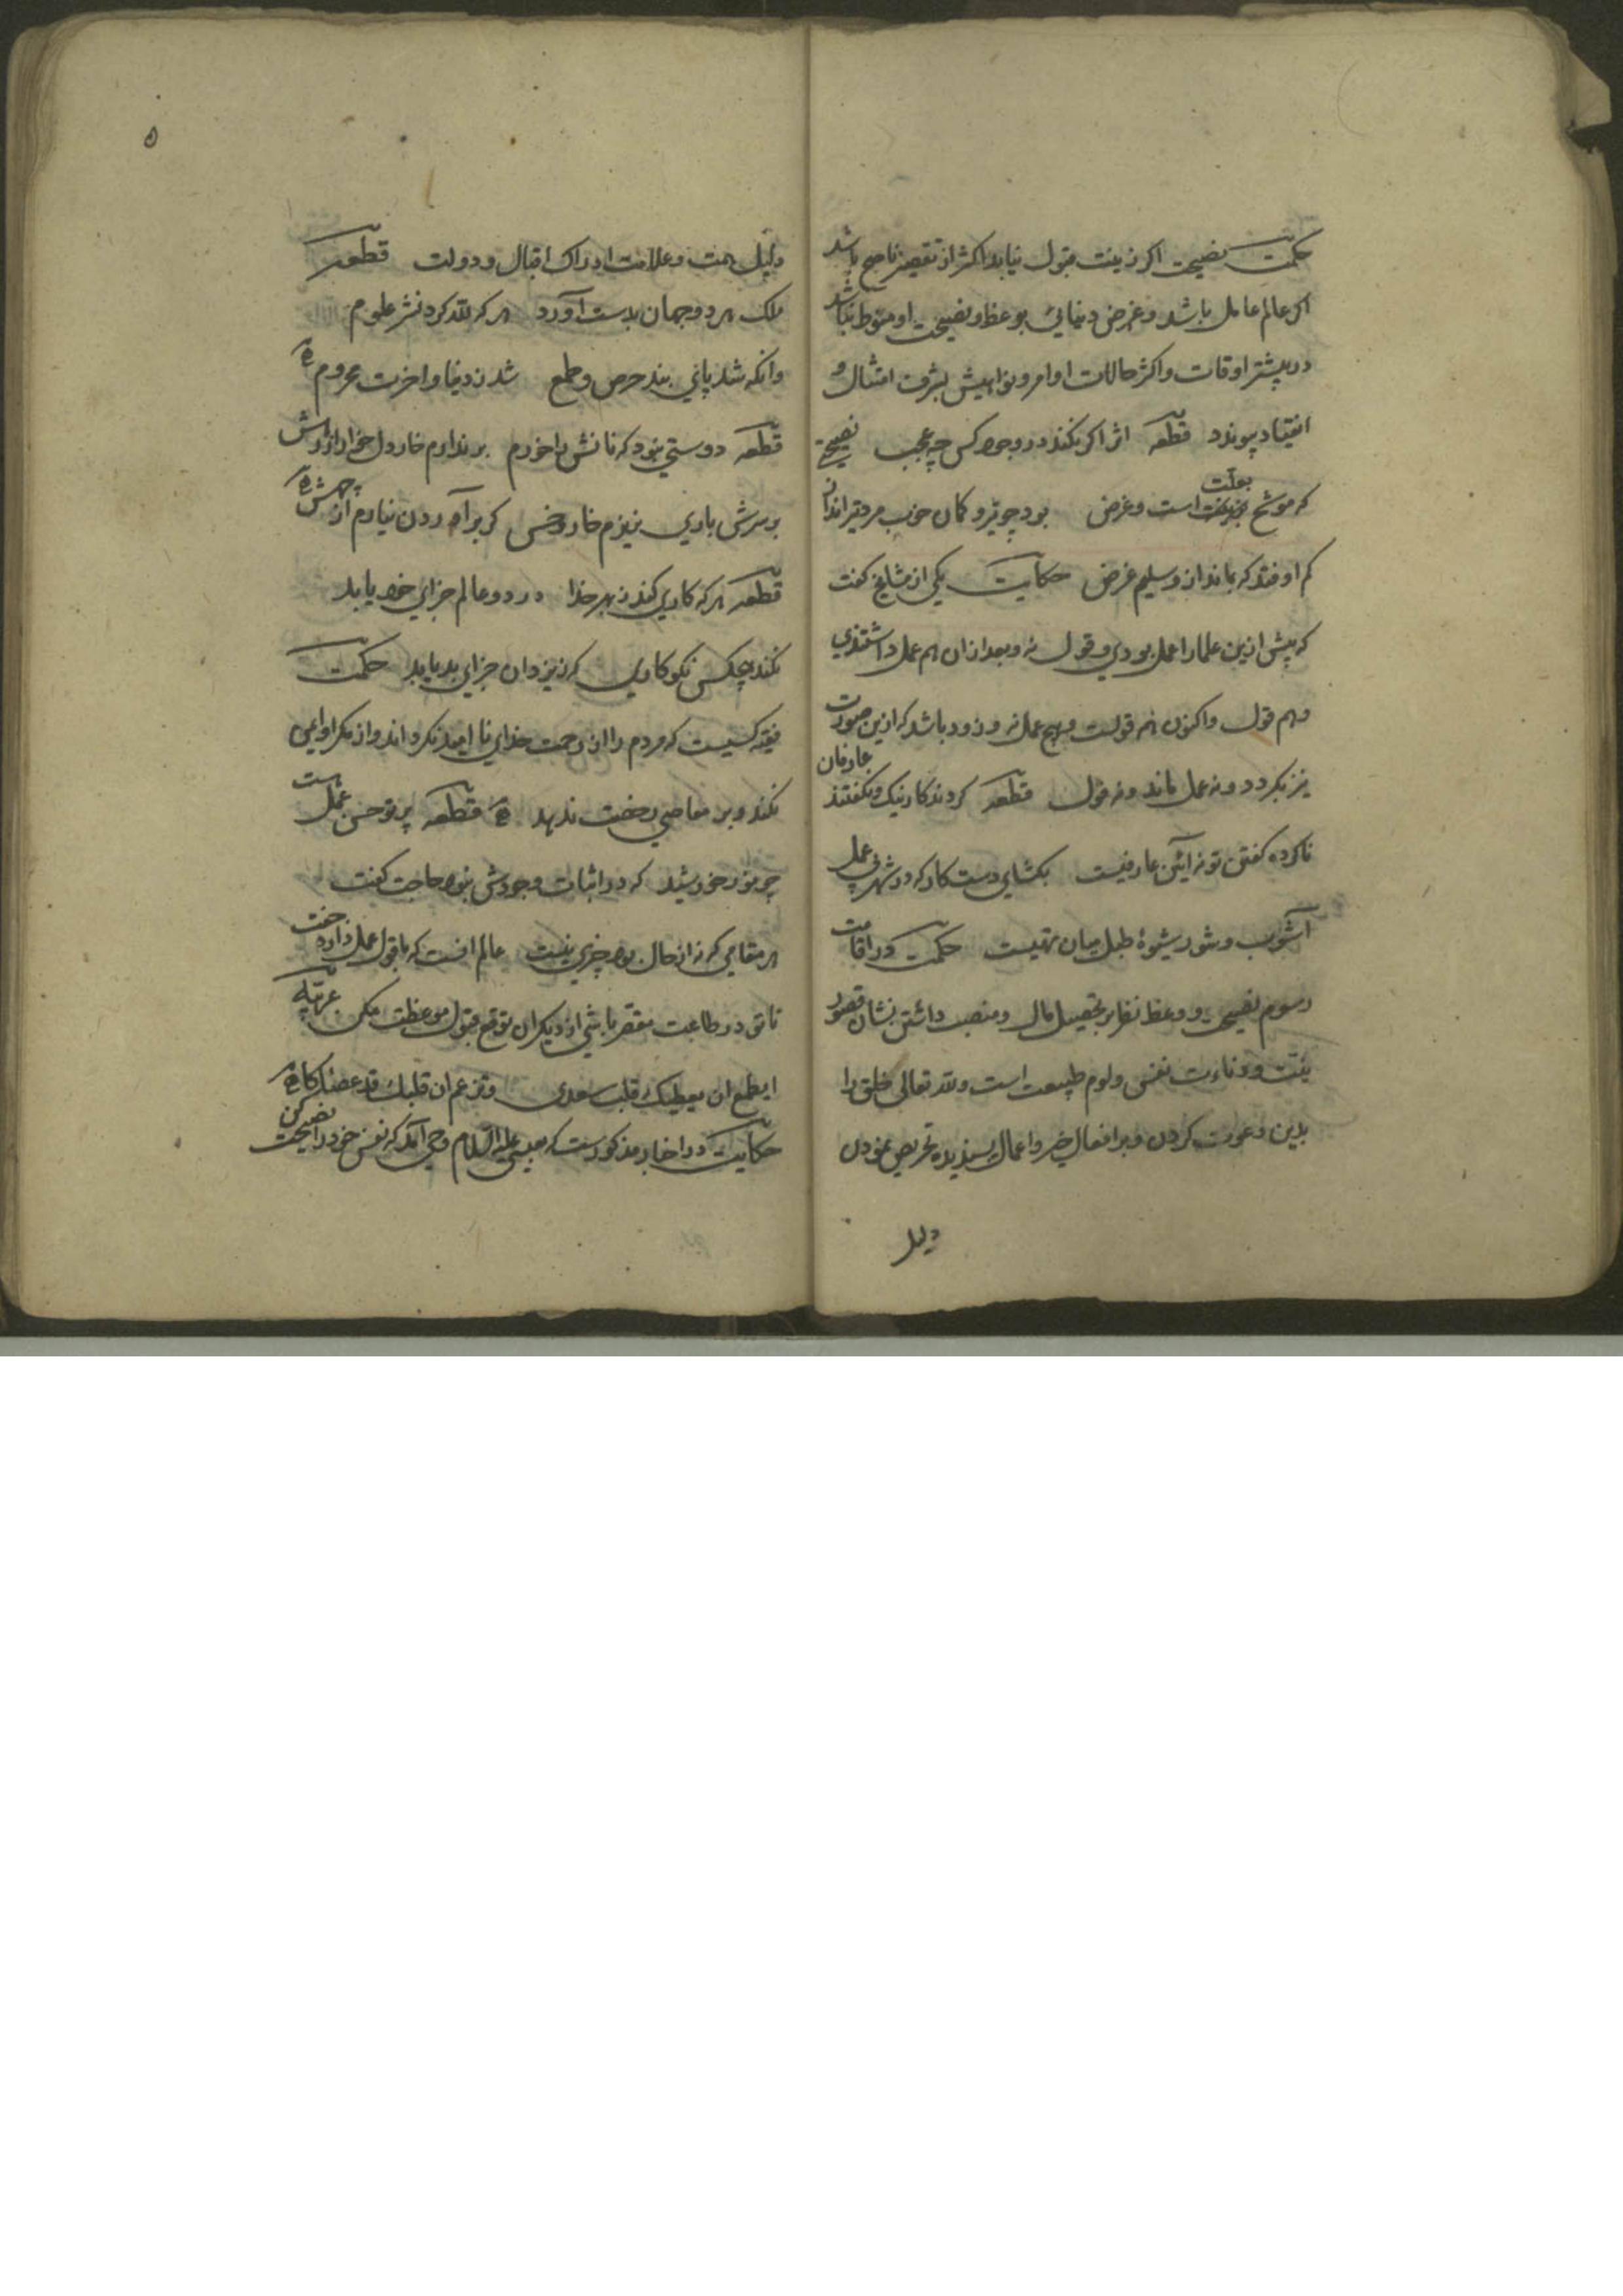 حکمت نصیحت اکر زینت قبول نیابد اکثر از تقصیر ناصح باشد
اکر عالم عامل باشد و غرض دنیائی بوعظ و نصیحت او منوط نباشد
در بیشتر اوقات و اکثر حالات اوامر و نواهیش بشرف امتثال و
انقیاد پیوندد قطعه اثر اکر نکند در وجود کس چه عجب نصیحتی
که موشح بعلت است و غرض بود چو تیر و کمان خوب مرد تیرانداز
کم اوفتد که بماند ازو سلیم غرض حکایت یکی از مشایخ کفت
که پیش ازین علما را عمل بودی و قول نه و بعد ازان هم عمل داشتندی
و هم قول و اکنون هم قولست و هیچ عمل نه و زود باشد که ازین صورت
نیز بکردد و نه عمل ماند و نه قول قطعه کردند کار نیک و نکفتند عارفان
ناکرده کفتن تو نه آیین عارفیست بکشای دست کار که در شهر بی عمل
آشوب و شور شیوۀ طبل میان تهیست حکمت در اقامت
رسوم نصیحت و وعظ نظر بر تحصیل مال و منصب داشتن نشان قصور
نیت و دناءت نفس و لوم طبیعت است و لله تعالی خلق را
بدین دعوت کردن و بر افعال خیر و اعمال پسندیده تحریص نمودن
دلیل
۵
دلیل همت و علامت ادراک اقبال و دولت قطعه
ملک هر دو جهان بدست آورد هر که لله کرد نشر علوم
وانکه شد پای بند حرص و طمع شد ز دنیا و اخرت محروم
قطعه دوستی نبود که نانش را خورم بر ندارم خار دل خراز رهش
بر سرش باری نریزم خار و خس کر بر آوردن نیارم از چهش
قطعه هر که کاری کند ز بهر خدا در دو عالم جزای خود یابد
نکند هیچکس نکوکاری که ز یزدان جزای بد یابد حکمت
فقیه کسیست که مردم را از رحمت خدای ناامید نکرداند و از مکر او ایمن
نکند و بر معاصی رخصت ندهد قطعه پرتو حسن عمل هست
چو نور خورشید که در اثبات وجودش نبود حاجت کفت
هر مقامی که نه از حال بود چیزی نیست عالم انست که با قول عمل دارد جفت
تا تو در طاعت مقصر باشی از دیکران توقع قبول موعظت مکن عربیه
ایطمع ان یطیعک قلب سعدی و تزعم ان قلبک قد عصاکا
حکایت در اخبار مذکورست که بعیسی علیه السلام وحی آمد که نفس خود را نصیحت کن